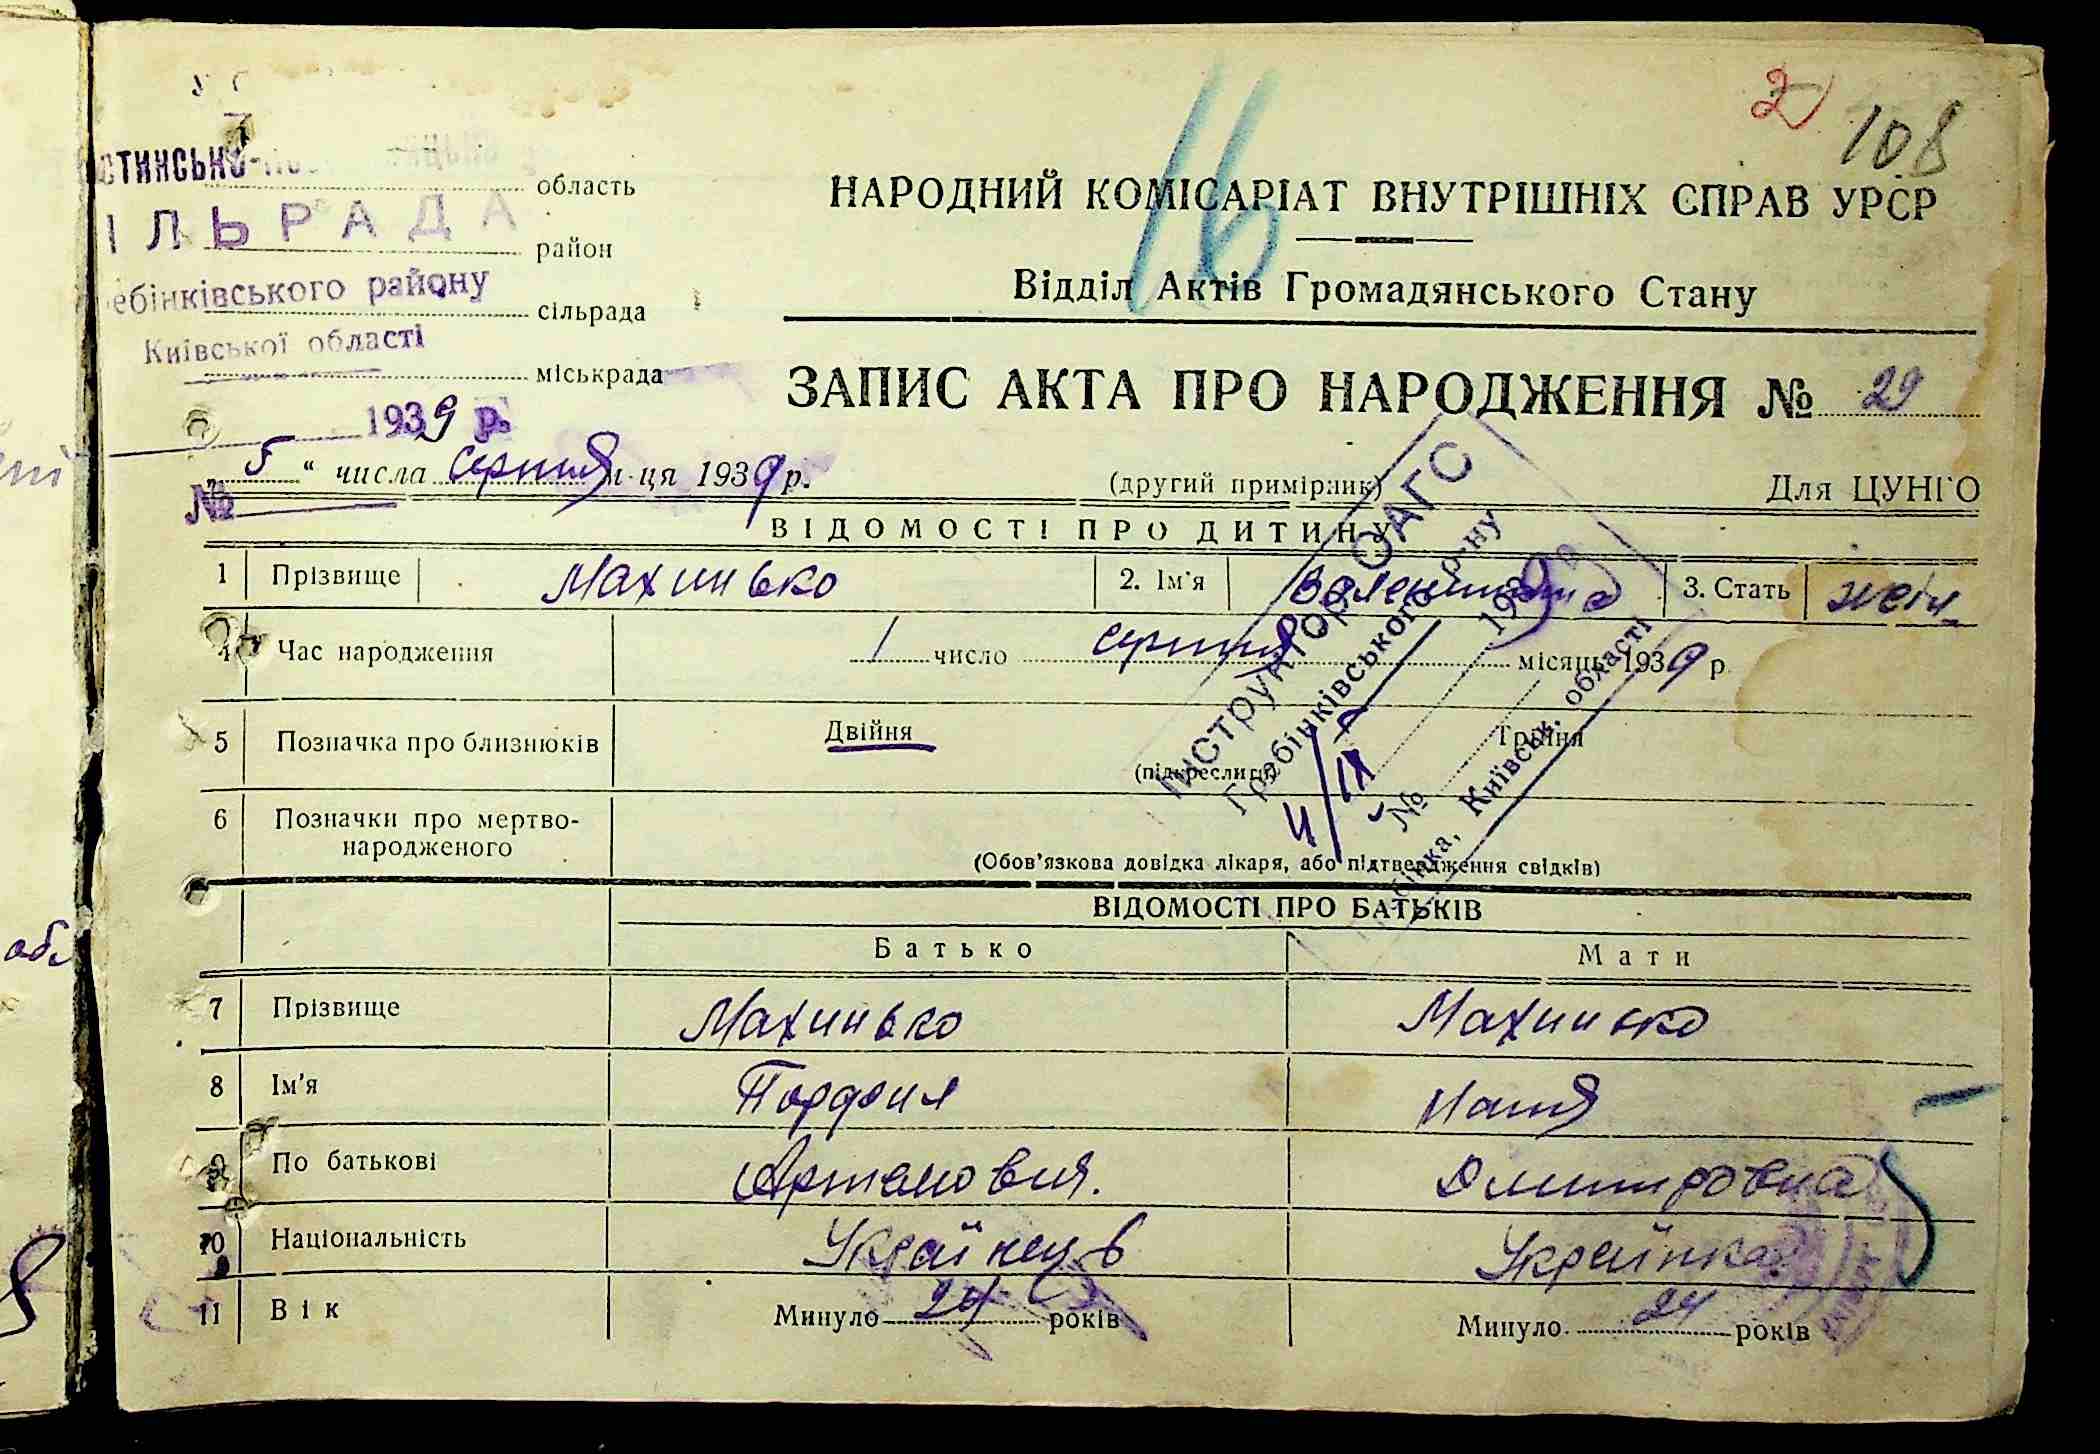 2 108
16
НАРОДНИЙ КОМІСАРІАТ ВНУТРІШНІХ СПРАВ УРСР
Відділ Актів Громадянського Стану
СТИНСЬКО- область
ІЛЬРАДА район
ебінківського району сільрада
Київської області міськрада
1939 р.
ЗАПИС АКТА ПРО НАРОДЖЕННЯ № 29
„5“ числа серпня м-ця 1939 р. (другий примірник) Для ЦУНГО
№
ВІДОМОСТІ ПРО ДИТИНУ
1 Прізвище Махинько 2. Ім'я Валентина 3. Стать жін.
4 Час народження 1 число серпня місяць 1939 р.
5 Позначка про близнюків Двійня Трійня
(підкреслиці)
6 Позначки про мертво-
народженого
(Обов'язкова довідка лікаря, або підтвердження свідків)
Інструктор ОАГС
Гребінківського р-ну
4/ІХ 1939
№
бінка, Київськ. області
ВІДОМОСТІ ПРО БАТЬКІВ
Батько Мати
7 Прізвище Махинько Махинько
8 Ім'я
9 По батькові Артемович. Дмитровна
10 Національність Українець Українка
11 Вік Минуло 24 років Минуло 24 років